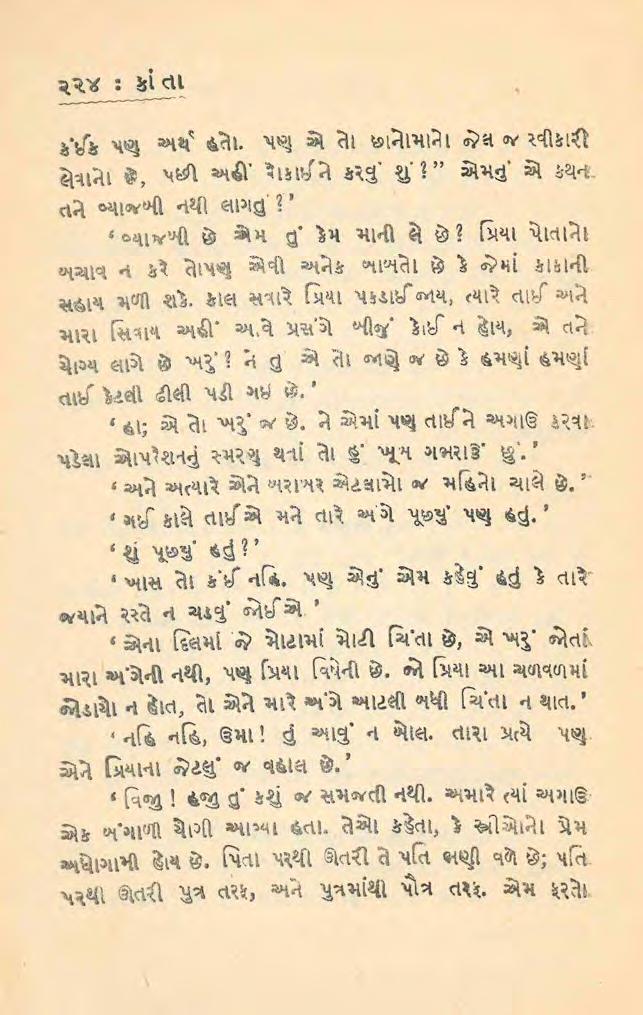 ૨૨૪ : કાંતા
કંઈક પણ અર્થ હતો. પણ એ તો છાનોમાનો જેલ જ સ્વીકારી
લેવાનો છે, પછી અહીં રોકાઈને કરવું શું ?” એમનું એ કથન
તને વ્યાજબી નથી લાગતું ?’
‘ વ્યાજબી છે એમ તું કેમ માની લે છે? પ્રિયા પોતાનો
બચાવ ન કરે તોપણ એવી અનેક બાબતો છે કે જેમાં કાકાની
સહાય મળી શકે. કાલ સવારે પ્રિયા પકડાઈ જાય, ત્યારે તાઈ અને
મારા સિવાય અહીં આવે પ્રસંગે બીજું કોઈ ન હોય, એ તને
યોગ્ય લાગે છે ખરું ? ને તુ એ તો જાણે જ છે કે હમણાં હમણાં
તાઈ કેટલી ઢીલી પડી ગઇ છે. ’
‘ હા; એ તો ખરું જ છે. ને એમાં પણ તાઈને અગાઉ કરવા
પડેલા ઓપરેશનનું સ્મરણ થતાં તો હું ખૂબ ગભરાઉં છું. ’
‘ અને અત્યારે એને બરાબર એટલામો જ મહિનો ચાલે છે. ’
‘ ગઈ કાલે તાઈએ મને તારે અંગે પૂછ્યું પણ હતું. ’
‘ શું પૂછ્યું હતું ?’
‘ ખાસ તો કંઈ નહિ. પણ એનું એમ કહેવું હતું કે તારે
જયાને રસ્તે ન ચડવું જોઈએ ’
‘ એના દિલમાં જે મોટામાં મોટી ચિંતા છે, એ ખરું જોતાં
મારા અંગેની નથી, પણ પ્રિયા વિષેની છે. જો પ્રિયા આ ચળવળમાં
જોડાયો ન હોત, તો એને મારે અંગે આટલી બધી ચિંતા ન થાત. ’
‘ નહિ નહિ, ઉમા! તું આવું ન બોલ. તારા પ્રત્યે પણ
એને પ્રિયાના જેટલું જ વહાલ છે. ’
‘ વિજુ ! હજી તું કશું જ સમજતી નથી. અમારે ત્યાં અગાઉ
એક બંગાળી યોગી આવ્યા હતા. તેઓ કહેતા, કે સ્ત્રીઓનો પ્રેમ
અધોગામી હોય છે. પિતા પરથી ઊતરી તે પતિ ભણી વળે છે; પતિ
પરથી ઊતરી પુત્ર તરફ, અને પુત્રમાંથી પૌત્ર તરફ. એમ ફરતો